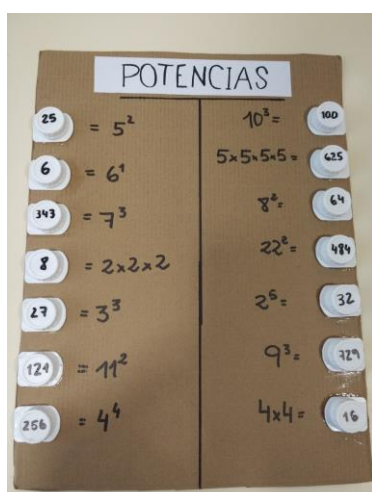 POTENCIAS
25 = 5²
6 = 6¹
343 = 7³
8 = 2×2×2
27 = 3³
121 = 11²
256 = 4⁴
10³= 100
5×5×5×5= 625
8²= 64
22²= 484
2⁵= 32
9³= 729
4×4= 16